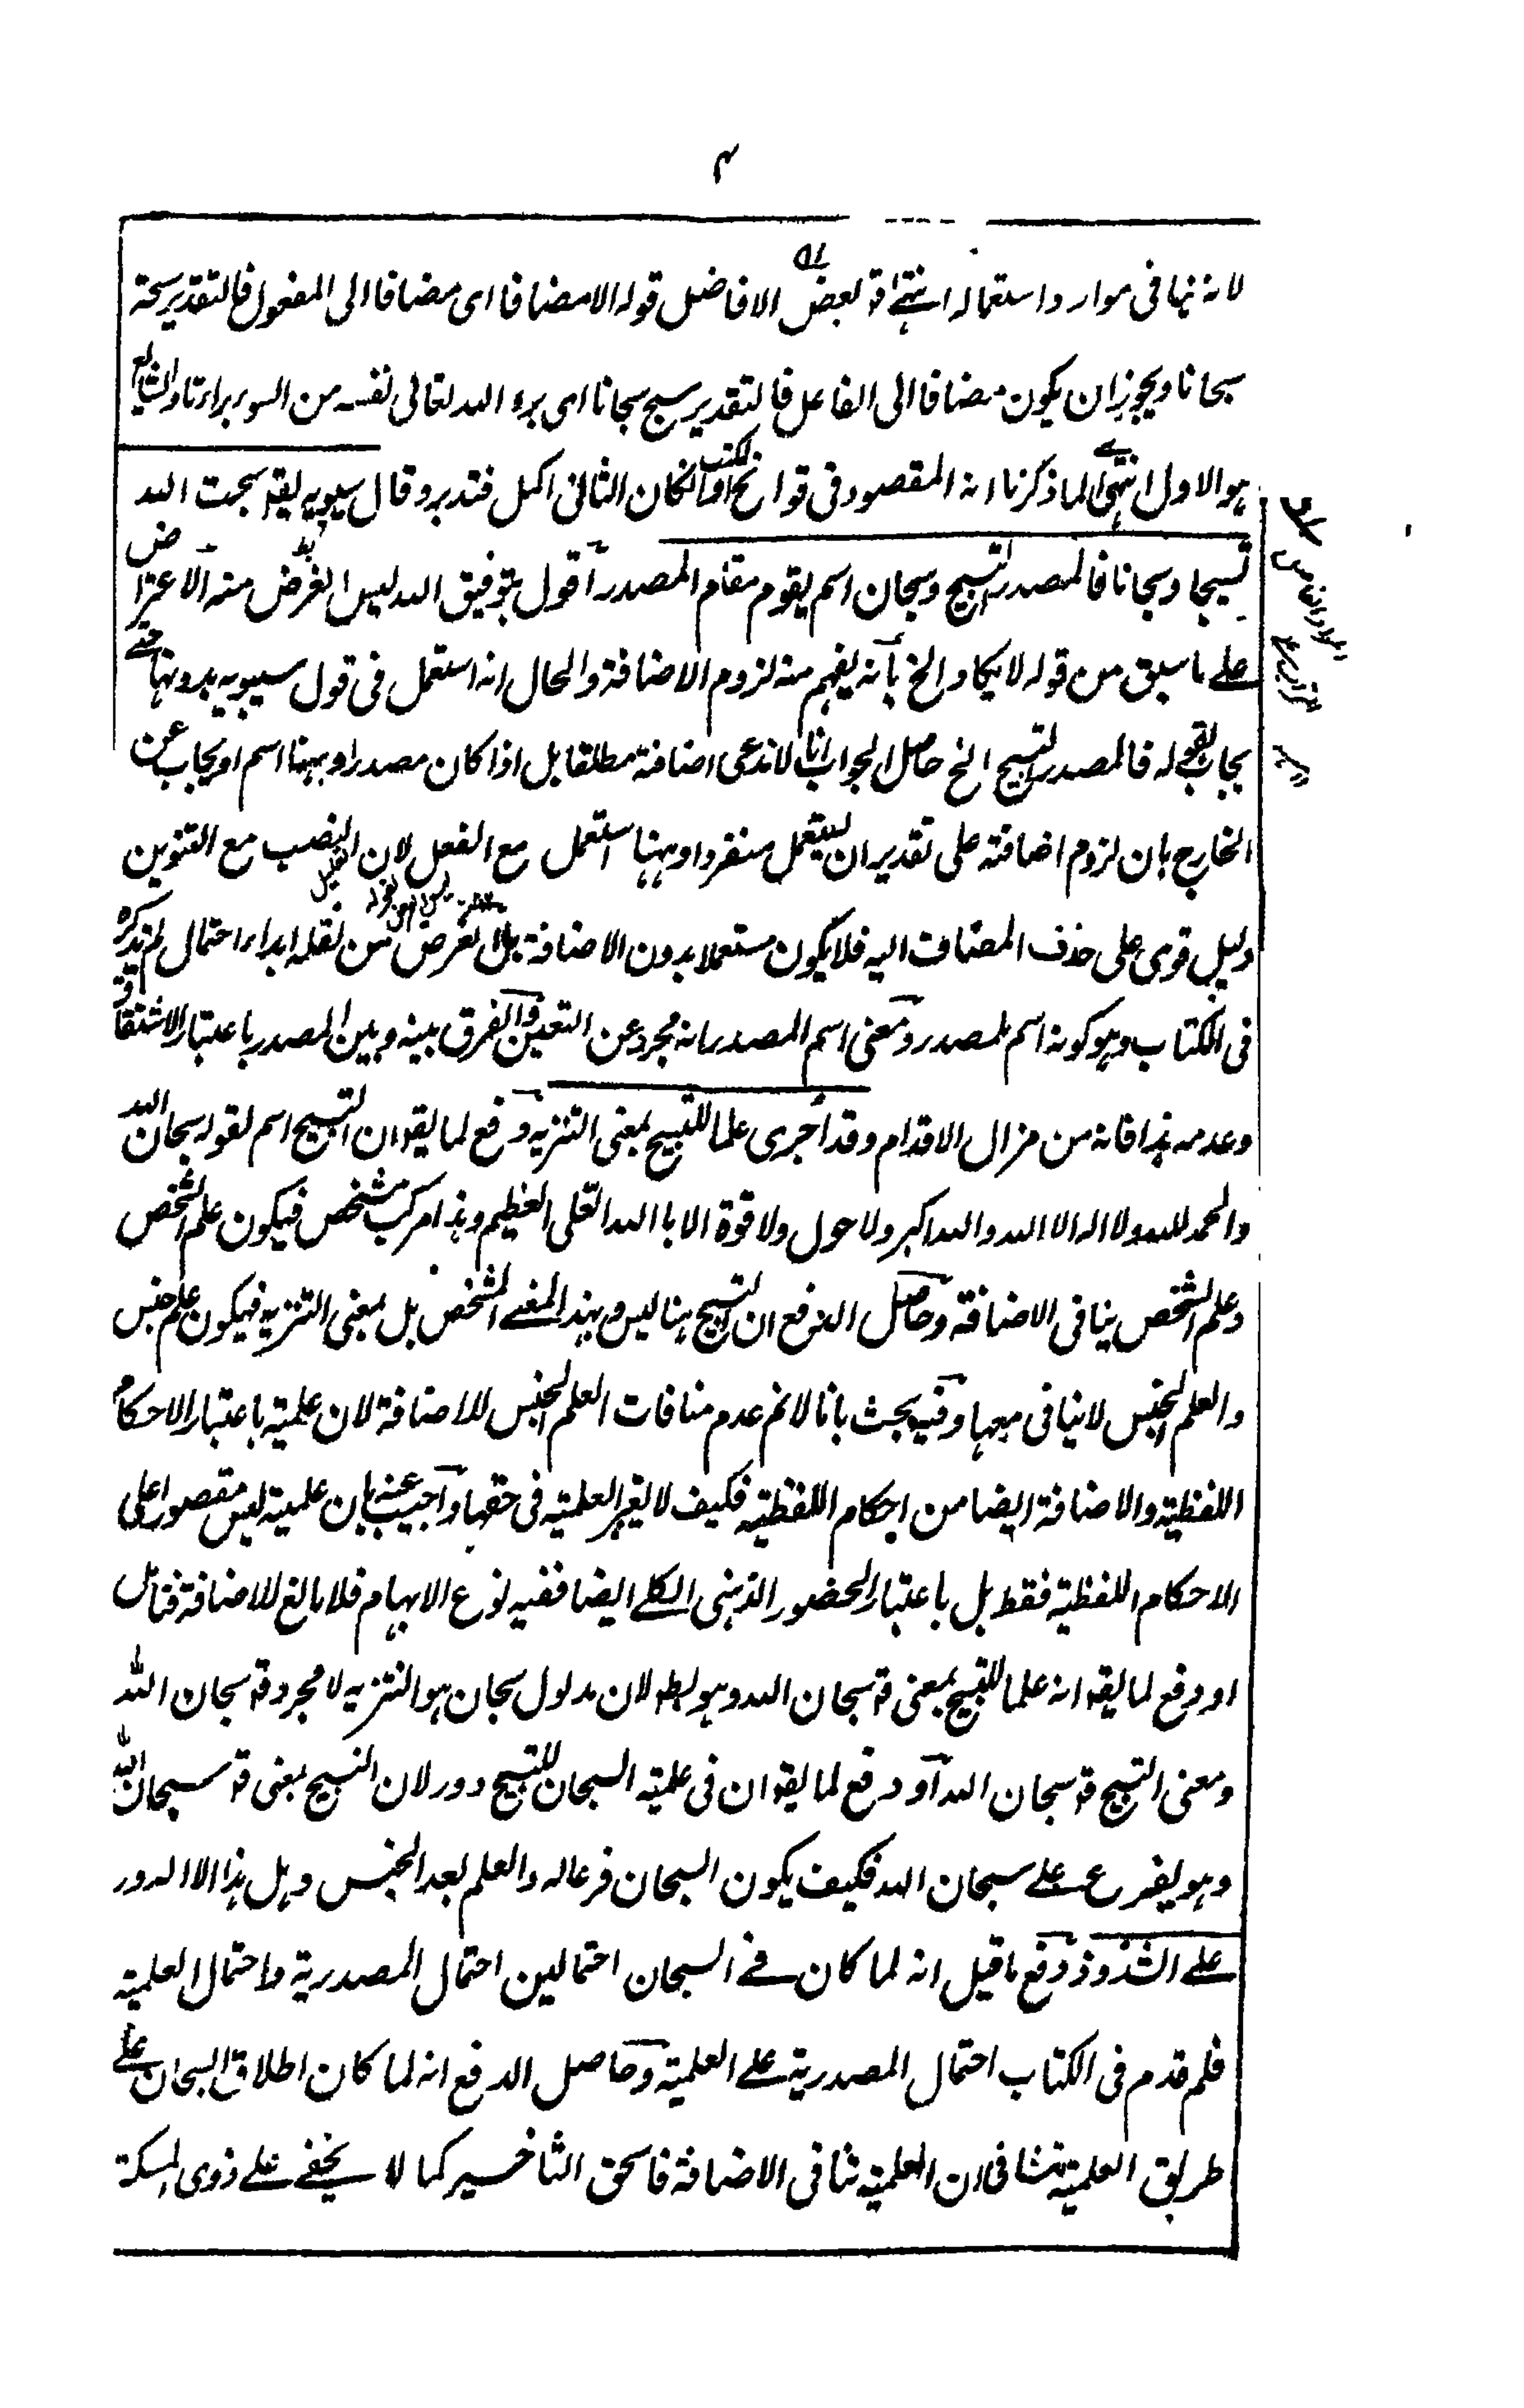 ۴
لانہ نہا فی موارد استعمالہ انتہی قو بعض الافاضل قولہ الا مضافا ای مضافا الی المفعول فالتقدیر سبحتہ
سبحانا ویجوز ان یکون مضافا الی الفاعل فالتقدیر سبح سبحانا ای برء اللہ تعالی نفسہ من السوء براءتا والشایع
ہو الاول انتہی لما ذکرنا انہ المقصود فی فواتح الکتب وانکان الثانی اکمل فتدبر وقال سیبویہ یقو سبحت اللہ
تسبیحا وسبحانا فالمصدر التسبیح وسبحان اسم یقوم مقام المصدر اقول بتوفیق اللہ لیس الغرض منہ الاعتراض
علے ما سبق من قولہ لا یکاد الخ بانہ یفہم منہ لزوم الاضافۃ والحال انہ استعمل فی قول سیبویہ بدونہا حتے
یجاب بقولہ فالمصدر التسبیح الخ حاصل الجواب انا لا ندعی اضافۃ مطلقا بل اذا کان مصدرا وہہنا اسم او یجاب عن
الخارج بان لزوم اضافتہ علی تقدیر ان یستعمل منفردا وہہنا استعمل مع الفعل لان النصب مع التنوین
دلیل قوی علی حذف المضاف الیہ فلا یکون مستعملا بدون الاضافۃ بل الغرض من نقلہ ابداء احتمال لم یذکرہ
فی الکتاب وہو کونہ اسم لمصدر ومعنی اسم المصدر انہ مجرد عن التعین والفرق بینہ وبین المصدر باعتبار الاشتقاق
وعدمہ ہذا فانہ من مزال الاقدام وقد اجری علما للتسبیح بمعنی التنزیہ دفع لما یقو ان التسبیح اسم لقولہ سبحان اللہ
والحمد للہ ولا الہ الا اللہ واللہ اکبر ولا حول ولا قوۃ الا باللہ العلی العظیم وہذا مرکب مشخص فیکون علم الشخص
وعلم الشخص ینافی الاضافۃ وحاصل الدفع ان التسبیح ہنا لیس بہذا المعنے المشخص بل بمعنی التنزیہ فیکون علم جنس
والعلم الجنس لا ینافی معہا وفیہ بحث بانا لا نم عدم منافات العلم الجنس للاضافۃ لان علمیتہ باعتبار الاحکام
اللفظیۃ والاضافۃ ایضا من احکام اللفظیۃ فکیف لا یغیر العلمیۃ فی حقہا واجیب عنہ بان علمیتہ لیس مقصورا علی
الاحکام اللفظیۃ فقط بل باعتبار الحضور الذہنی الکلے ایضا ففیہ نوع الابہام فلا مانع للاضافۃ فتامل
او دفع لما یقو انہ علما للتسبیح بمعنی قو سبحان اللہ وہو بط لان مدلول سبحان ہو التنزیہ لا مجرد قو سبحان اللہ
ومعنی التسبیح قو سبحان اللہ او دفع لما یقو ان فی علمیۃ السبحان للتسبیح دور لان التسبیح بمعنی قو سبحان اللہ
وہو یفرع علے سبحان اللہ فکیف یکون السبحان فرعا لہ والعلم بعد الجنس وہل ہذا الا الدور
علے الشذوذ دفع ما قیل انہ لما کان فے السبحان احتمالین احتمال المصدریۃ واحتمال العلمیۃ
فلم قدم فی الکتاب احتمال المصدریۃ علے العلمیۃ وحاصل الدفع انہ لما کان اطلاق السبحان علے
طریق العلمیۃ شاذ فی ان العلمیۃ تنافی الاضافۃ فاستحق التاخیر کما لا یخفے علے ذوی المسکۃ